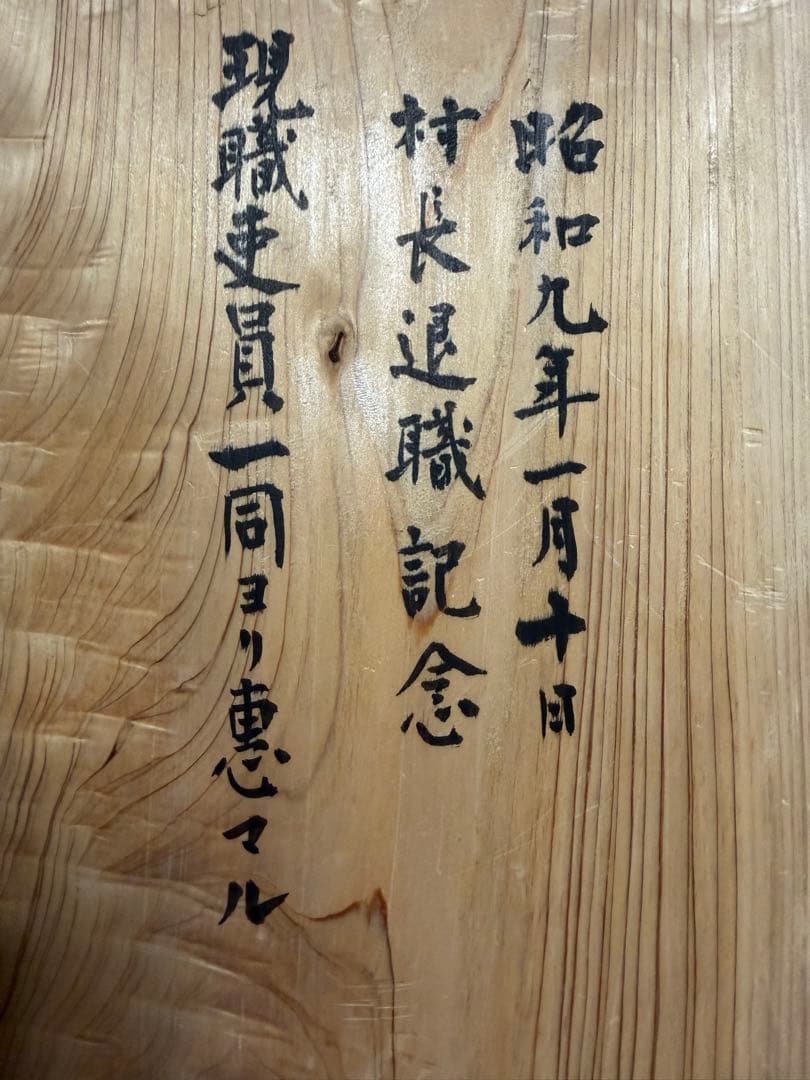 昭和九年一月十日
村長退職記念
現職吏員一同ヨリ惠マル